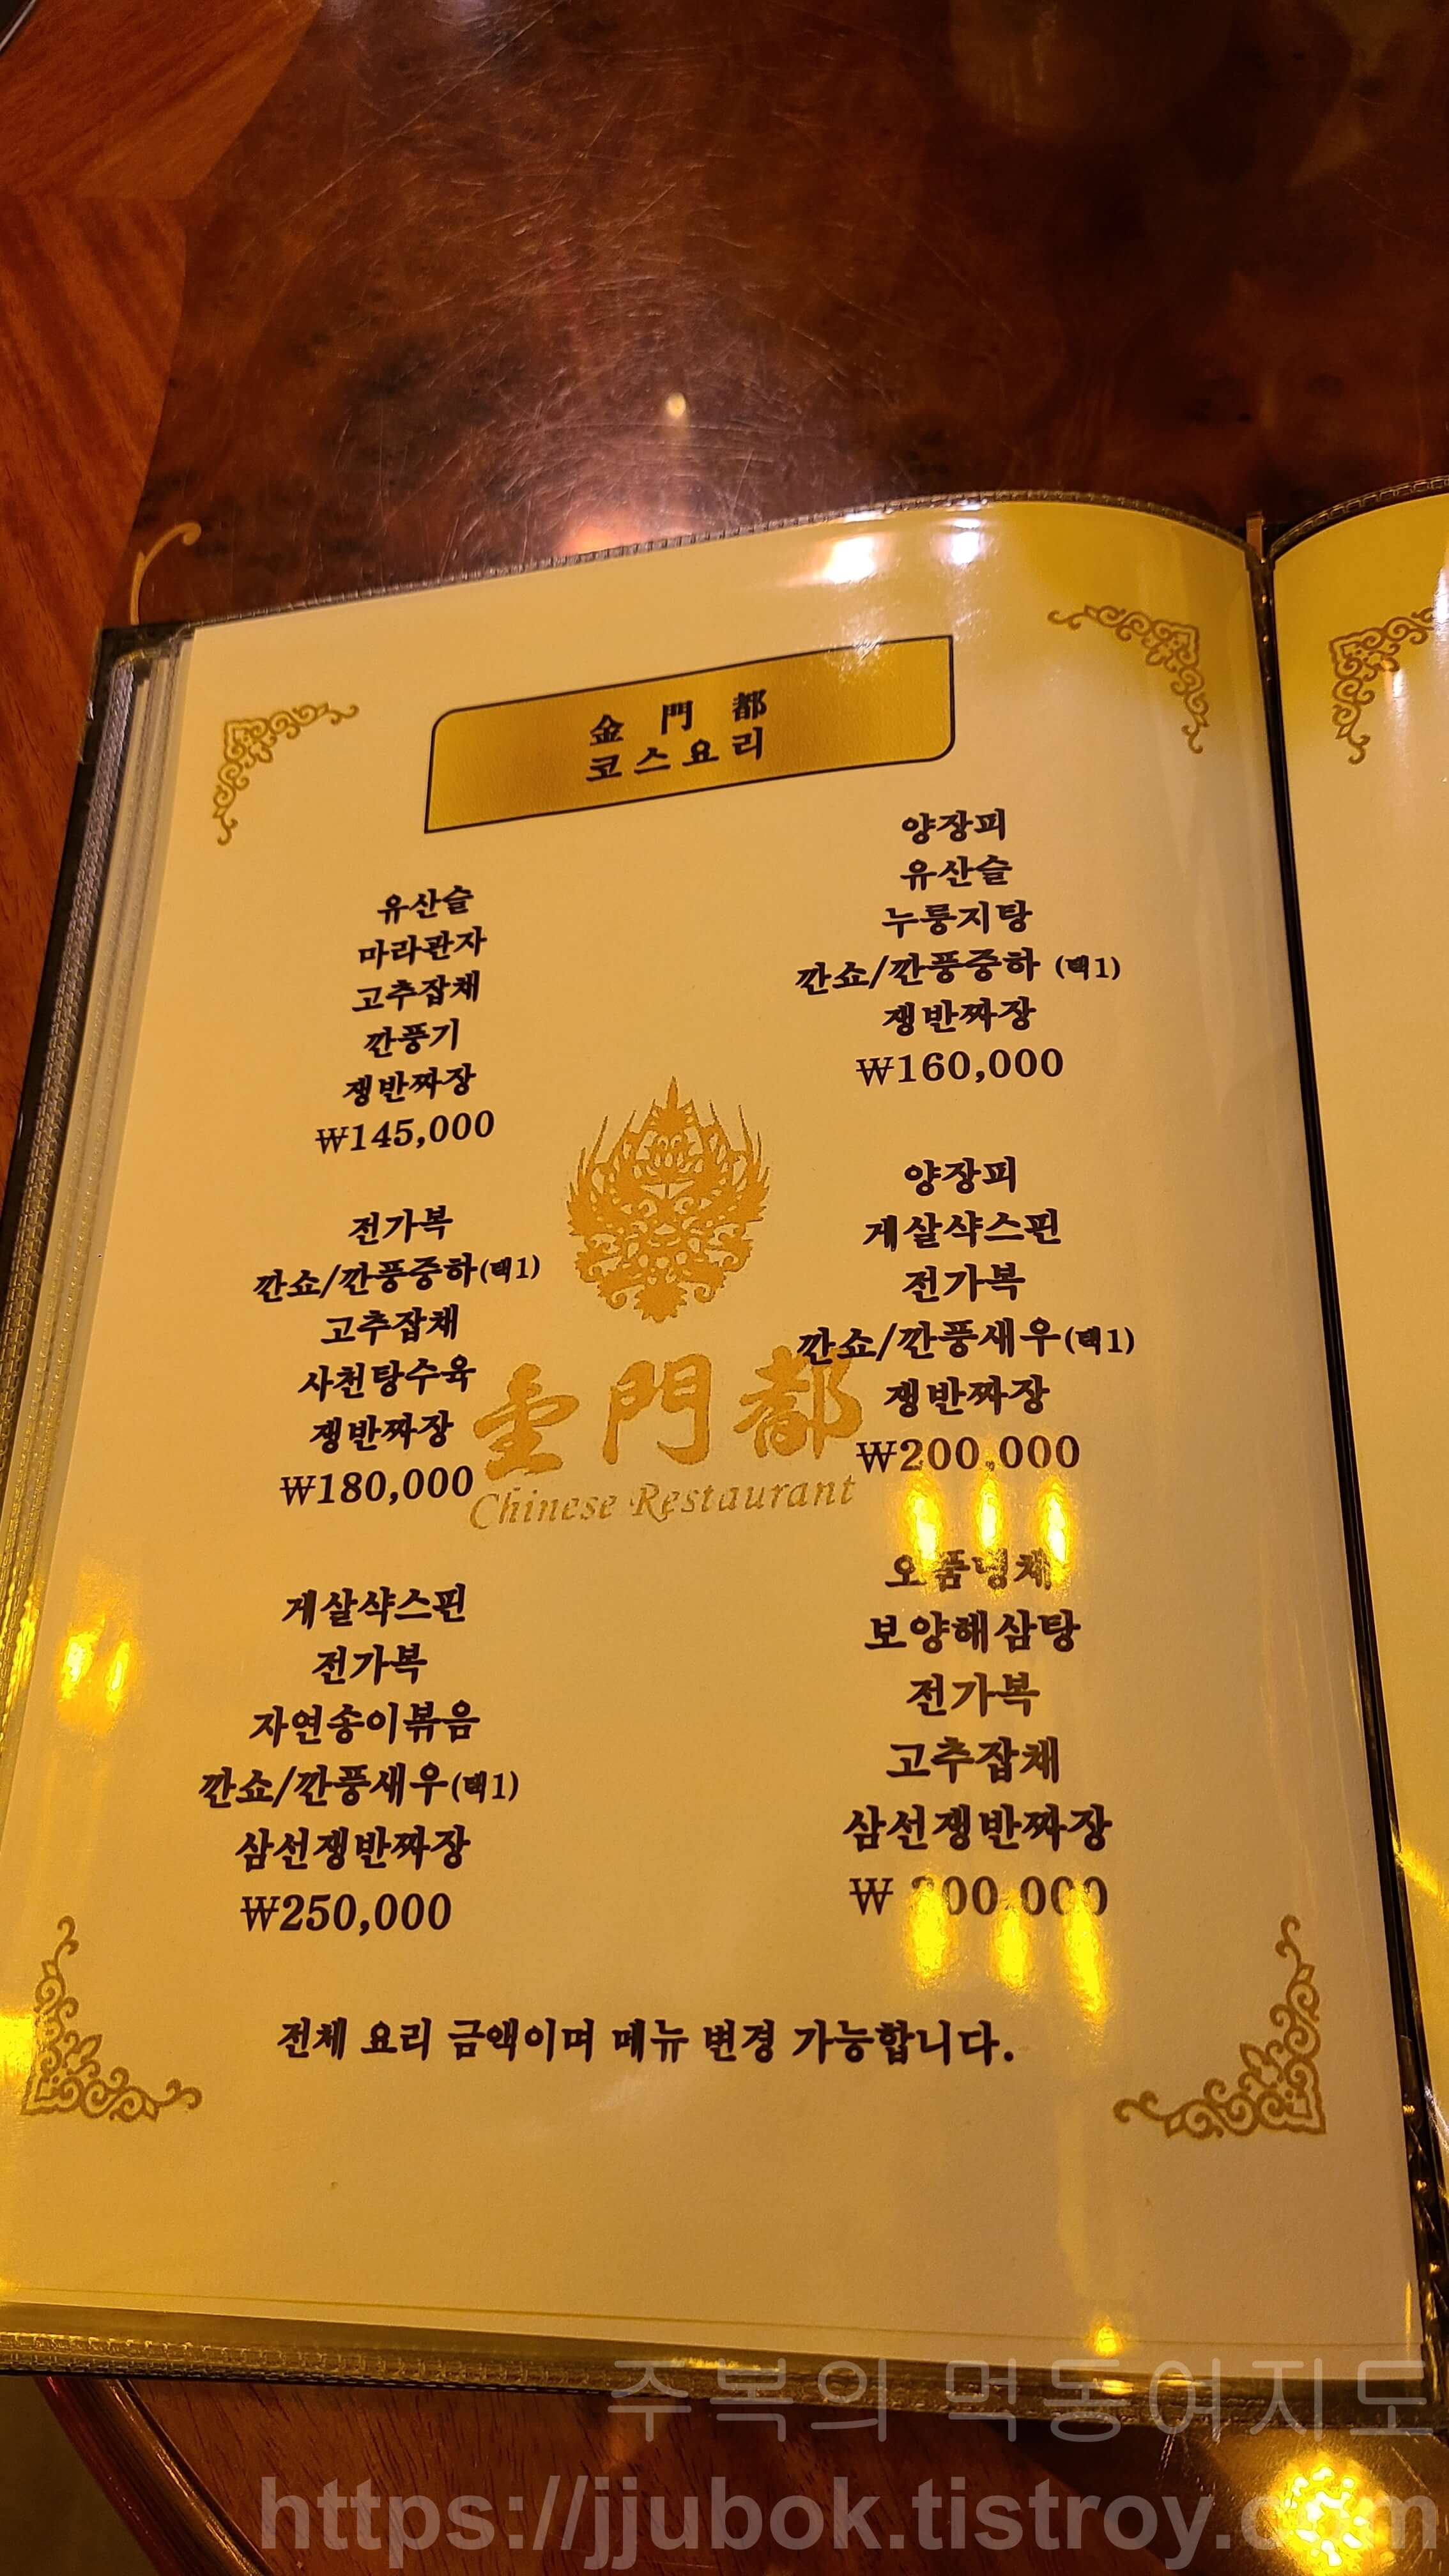 金 門 都
코스요리
유산슬
마라관자
고추잡채
깐풍기
쟁반짜장
₩145,000
전가복
깐쇼/깐풍중하(택1)
고추잡채
사천탕수육
쟁반짜장
₩180,000
게살샥스핀
전가복
자연송이볶음
깐쇼/깐풍새우(택1)
삼선쟁반짜장
₩250,000
양장피
유산슬
누룽지탕
깐쇼/깐풍중하 (택1)
쟁반짜장
₩160,000
양장피
게살샥스핀
전가복
깐쇼/깐풍새우(택1)
쟁반짜장
₩200,000
오품냉채
보양해삼탕
전가복
고추잡채
삼선쟁반짜장
₩
金門都
Chinese Restaurant
전체 요리 금액이며 메뉴 변경 가능합니다.
주복의 먹동여지도
https://jjubok.tistroy.com